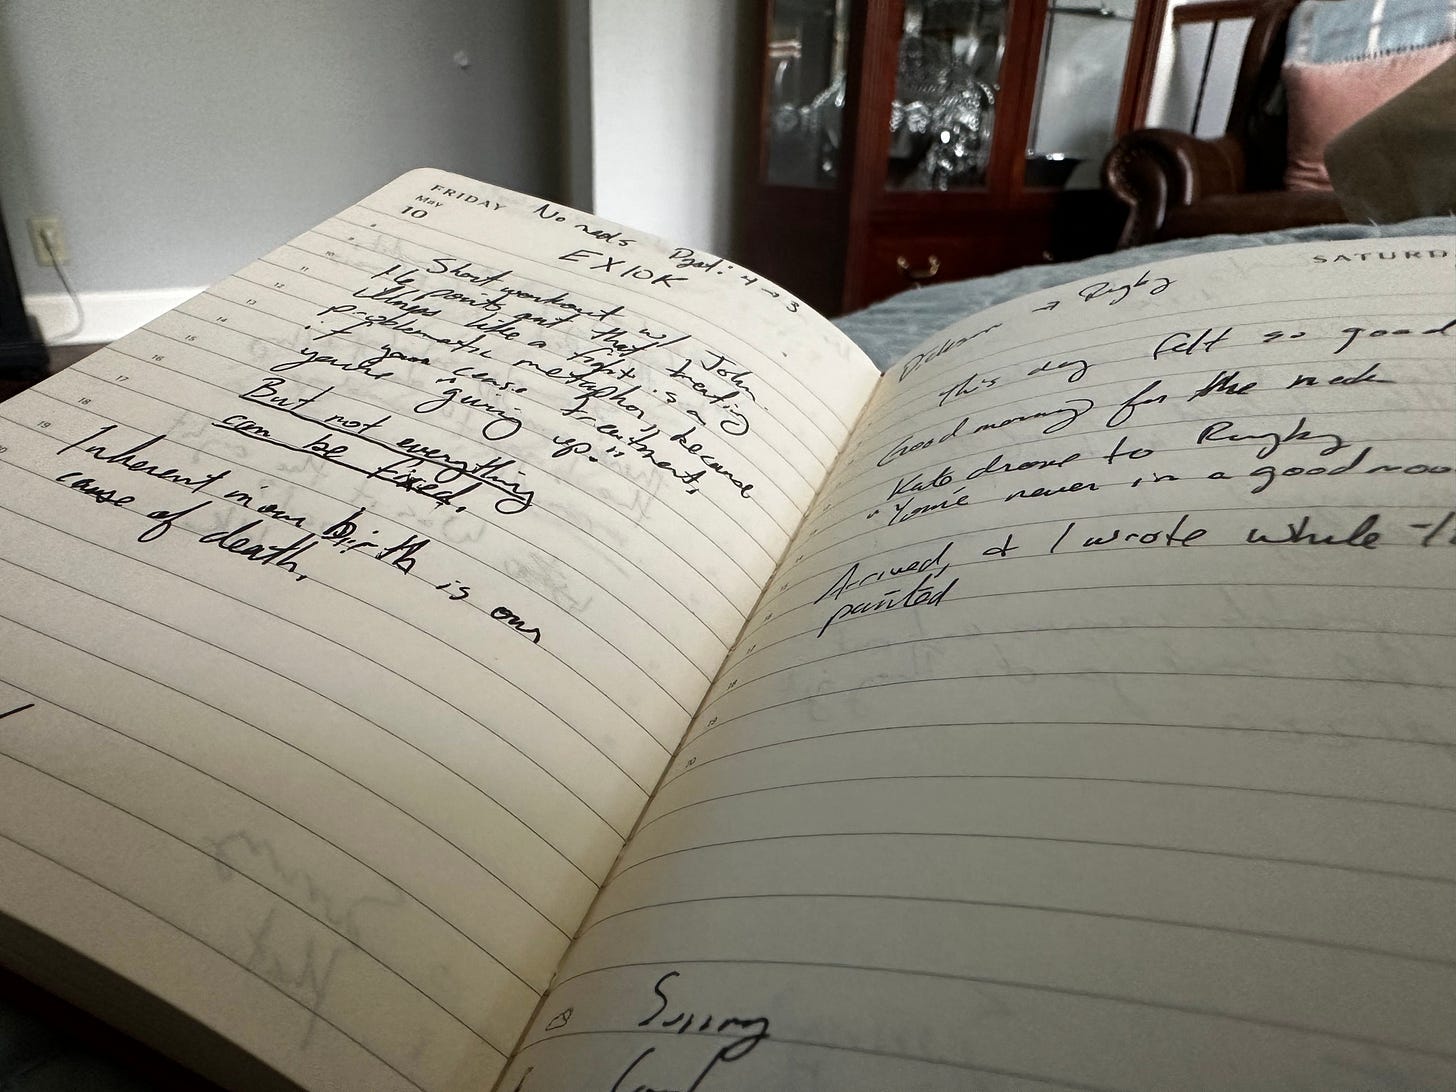 FRIDAY
May
10
No meds
EX10K
Short workout w/ John.
He points out that treating
illness like a fight is a
problematic metaphor, because
if you cease treatment,
you're "giving up."
But not everything
can be fixed.
Inherent in our birth is our
cause of death.
8
9
10
11
12
13
14
15
16
17
18
19
20
SATURD
→ Rugby
This day felt so good
Good morning for the
Kate drove to Rugby
"You're never in a good moo
Arrived, & I wrote while
painted
17
18
19
20
Sunny